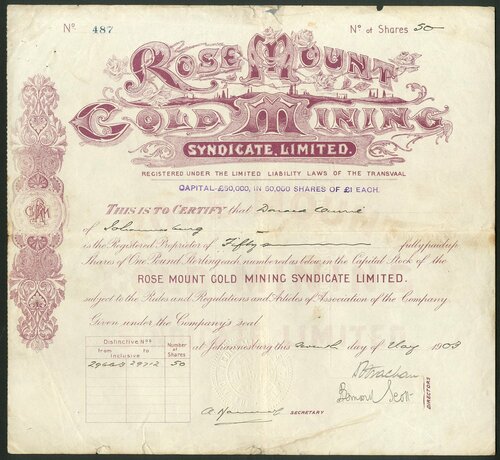 Nº 487 Nº of Shares 50
ROSE MOUNT
GOLD MINING
SYNDICATE, LIMITED.
REGISTERED UNDER THE LIMITED LIABILITY LAWS OF THE TRANSVAAL
CAPITAL-£50,000, IN 50,000 SHARES OF £1 EACH.
THIS IS TO CERTIFY that Donald Currie
of Johannesburg
is the Registered Proprietor of Fifty fully paid up
Shares of One Pound Sterling each, numbered as below, in the Capital Stock of the
ROSE MOUNT GOLD MINING SYNDICATE LIMITED.
subject to the Rules and Regulations and Articles of Association of the Company.
Given under the Company's seal
at Johannesburg this seventh day of May 1903
Distinctive Nºs Number of Shares
from Inclusive to
29663 29712 50
SECRETARY
DIRECTORS